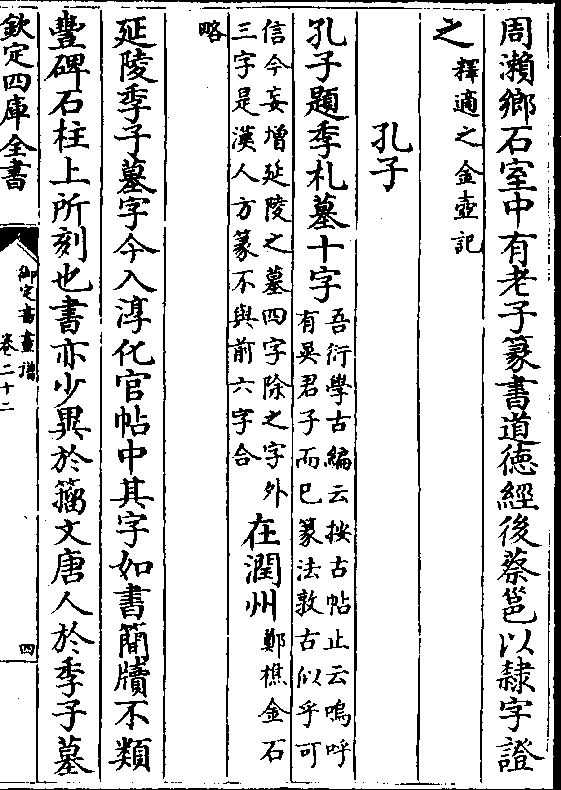 周瀬鄉石室中有老子篆書道徳經後蔡邕以隸字證
之釋適之金壺記
孔子
孔子題季札墓十字吾衍學古編云按古帖止云嗚呼
有吳君子而已篆法敦古似乎可
信今妄增延陵之墓四字除之字外
三字是漢人方篆不與前六字合
在潤州鄭樵金石
略
延陵季子墓字今入淳化官帖中其字如書簡牘不類
豐碑石柱上所刻也書亦少異於籀文唐人於季子墓
欽定四庫全書
御定書畫譜
卷二十二
四